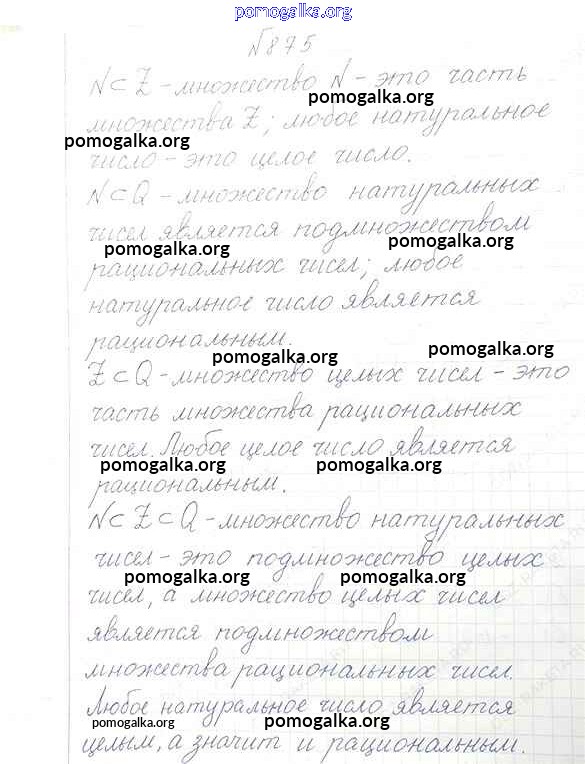 pomogalka.org
№875
N⊂Z - множество N - это часть
pomogalka.org
множества Z; любое натуральное
pomogalka.org
число - это целое число.
N⊂Q - множество натуральных
чисел является подмножеством
pomogalka.org pomogalka.org
рациональных чисел; любое
натуральное число является
рациональным.
pomogalka.org pomogalka.org
Z⊂Q - множество целых чисел - это
часть множества рациональных
чисел. Любое целое число является
pomogalka.org pomogalka.org
рациональным.
N⊂Z⊂Q - множество натуральных
чисел - это подмножество целых
pomogalka.org pomogalka.org
чисел, а множество целых чисел
является подмножеством
множества рациональных чисел.
Любое натуральное число является
pomogalka.org pomogalka.org
целым, а значит и рациональным.